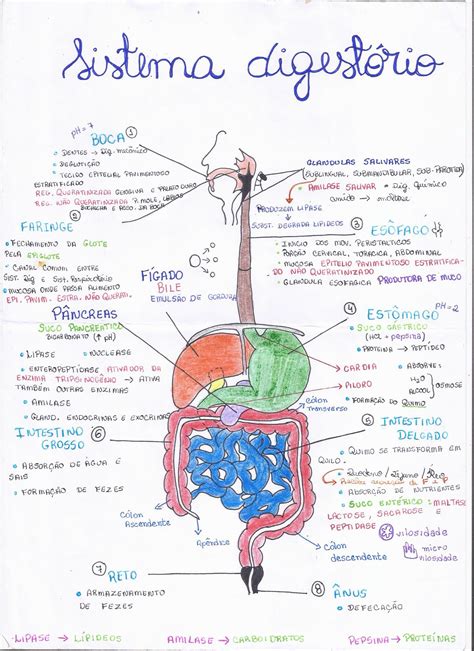 Sistema digestório
pH = 7
BOCA ①
• DENTES → Dig. mecânico
• DEGLUTIÇÃO
• TECIDO EPITELIAL PAVIMENTOSO
ESTRATIFICADO
REG. QUERATINIZADA GENGIVA E PALATO DURO
REG. NÃO QUERATINIZADA P. MOLE, LÁBIOS
BOCHECHA E ASSO. DA BOCA
GLANDULAS SALIVARES
(SUBLINGUAL, SUBMANDIBULAR, SUB. PARÓTIDA)
• AMILASE SALIVAR → Dig. Químico
amido → maltose
PRODUZEM LIPASE
↳ SUBST. DEGRADA LIPÍDEOS
②
FARINGE
• FECHAMENTO DA GLOTE
PELA EPIGLOTE
• CANAL COMUM ENTRE
SIST. DIG E SIST. RESPIRATÓRIO
• MUCOSA ONDE PASSA ALIMENTO
EPI. PAVIM. ESTRA. NÃO QUERAM.
③ ESÔFAGO
• INICIO DOS MOV. PERISTÁLTICOS
• PORÇÃO CERVICAL, TORÁCICA, ABDOMINAL
• MUCOSA EPITELIO PAVIMENTOSO ESTRATIFICA-
DO NÃO QUERATINIZADO
• GLANDULA ESOFAGICA PRODUTORA DE MUCO
FÍGADO
BILE
EMULSÃO DE GORDURA
PÂNCREAS
SUCO PANCREÁTICO
BICARBONATO (↑ pH)
• LIPASE • NUCLEASE
• ENTEROPEPTIDASE ATIVADOR DA
ENZIMA TRIPSINOGÊNIO → ATIVA
TAMBÉM OUTRAS ENZIMAS
• AMILASE
• GLAND. ENDÓCRINAS E EXÓCRINAS
④ ESTÔMAGO pH = 2
• SUCO GÁSTRICO
(HCl + pepsina)
• PROTEÍNA → PEPTÍDEO
→ CARDIA
→ PILORO
• ABSORVE:
H₂O
ALCOOL
OSMOSE
• FORMAÇÃO DO QUIMO
Cólon
Transverso
INTESTINO ⑥
GROSSO
• ABSORÇÃO DE ÁGUA E
SAIS
• FORMAÇÃO DE FEZES
⑤ INTESTINO
DELGADO
• QUIMO SE TRANSFORMA EM
QUILO
• Duodeno / Jejuno / Íleo
• ABSORÇÃO DE NUTRIENTES
• SUCO ENTÉRICO: MALTASE
LACTOSE, SACAROSE E
PEPTIDASE
vilosidade
micro
vilosidade
Cólon
Ascendente
Apêndice
Cólon
descendente
⑦
RETO
• ARMAZENAMENTO
DE FEZES
⑧ ÂNUS
• DEFECAÇÃO
LIPASE → LÍPIDEOS AMILASE → CARBOIDRATOS PEPSINA → PROTEÍNAS